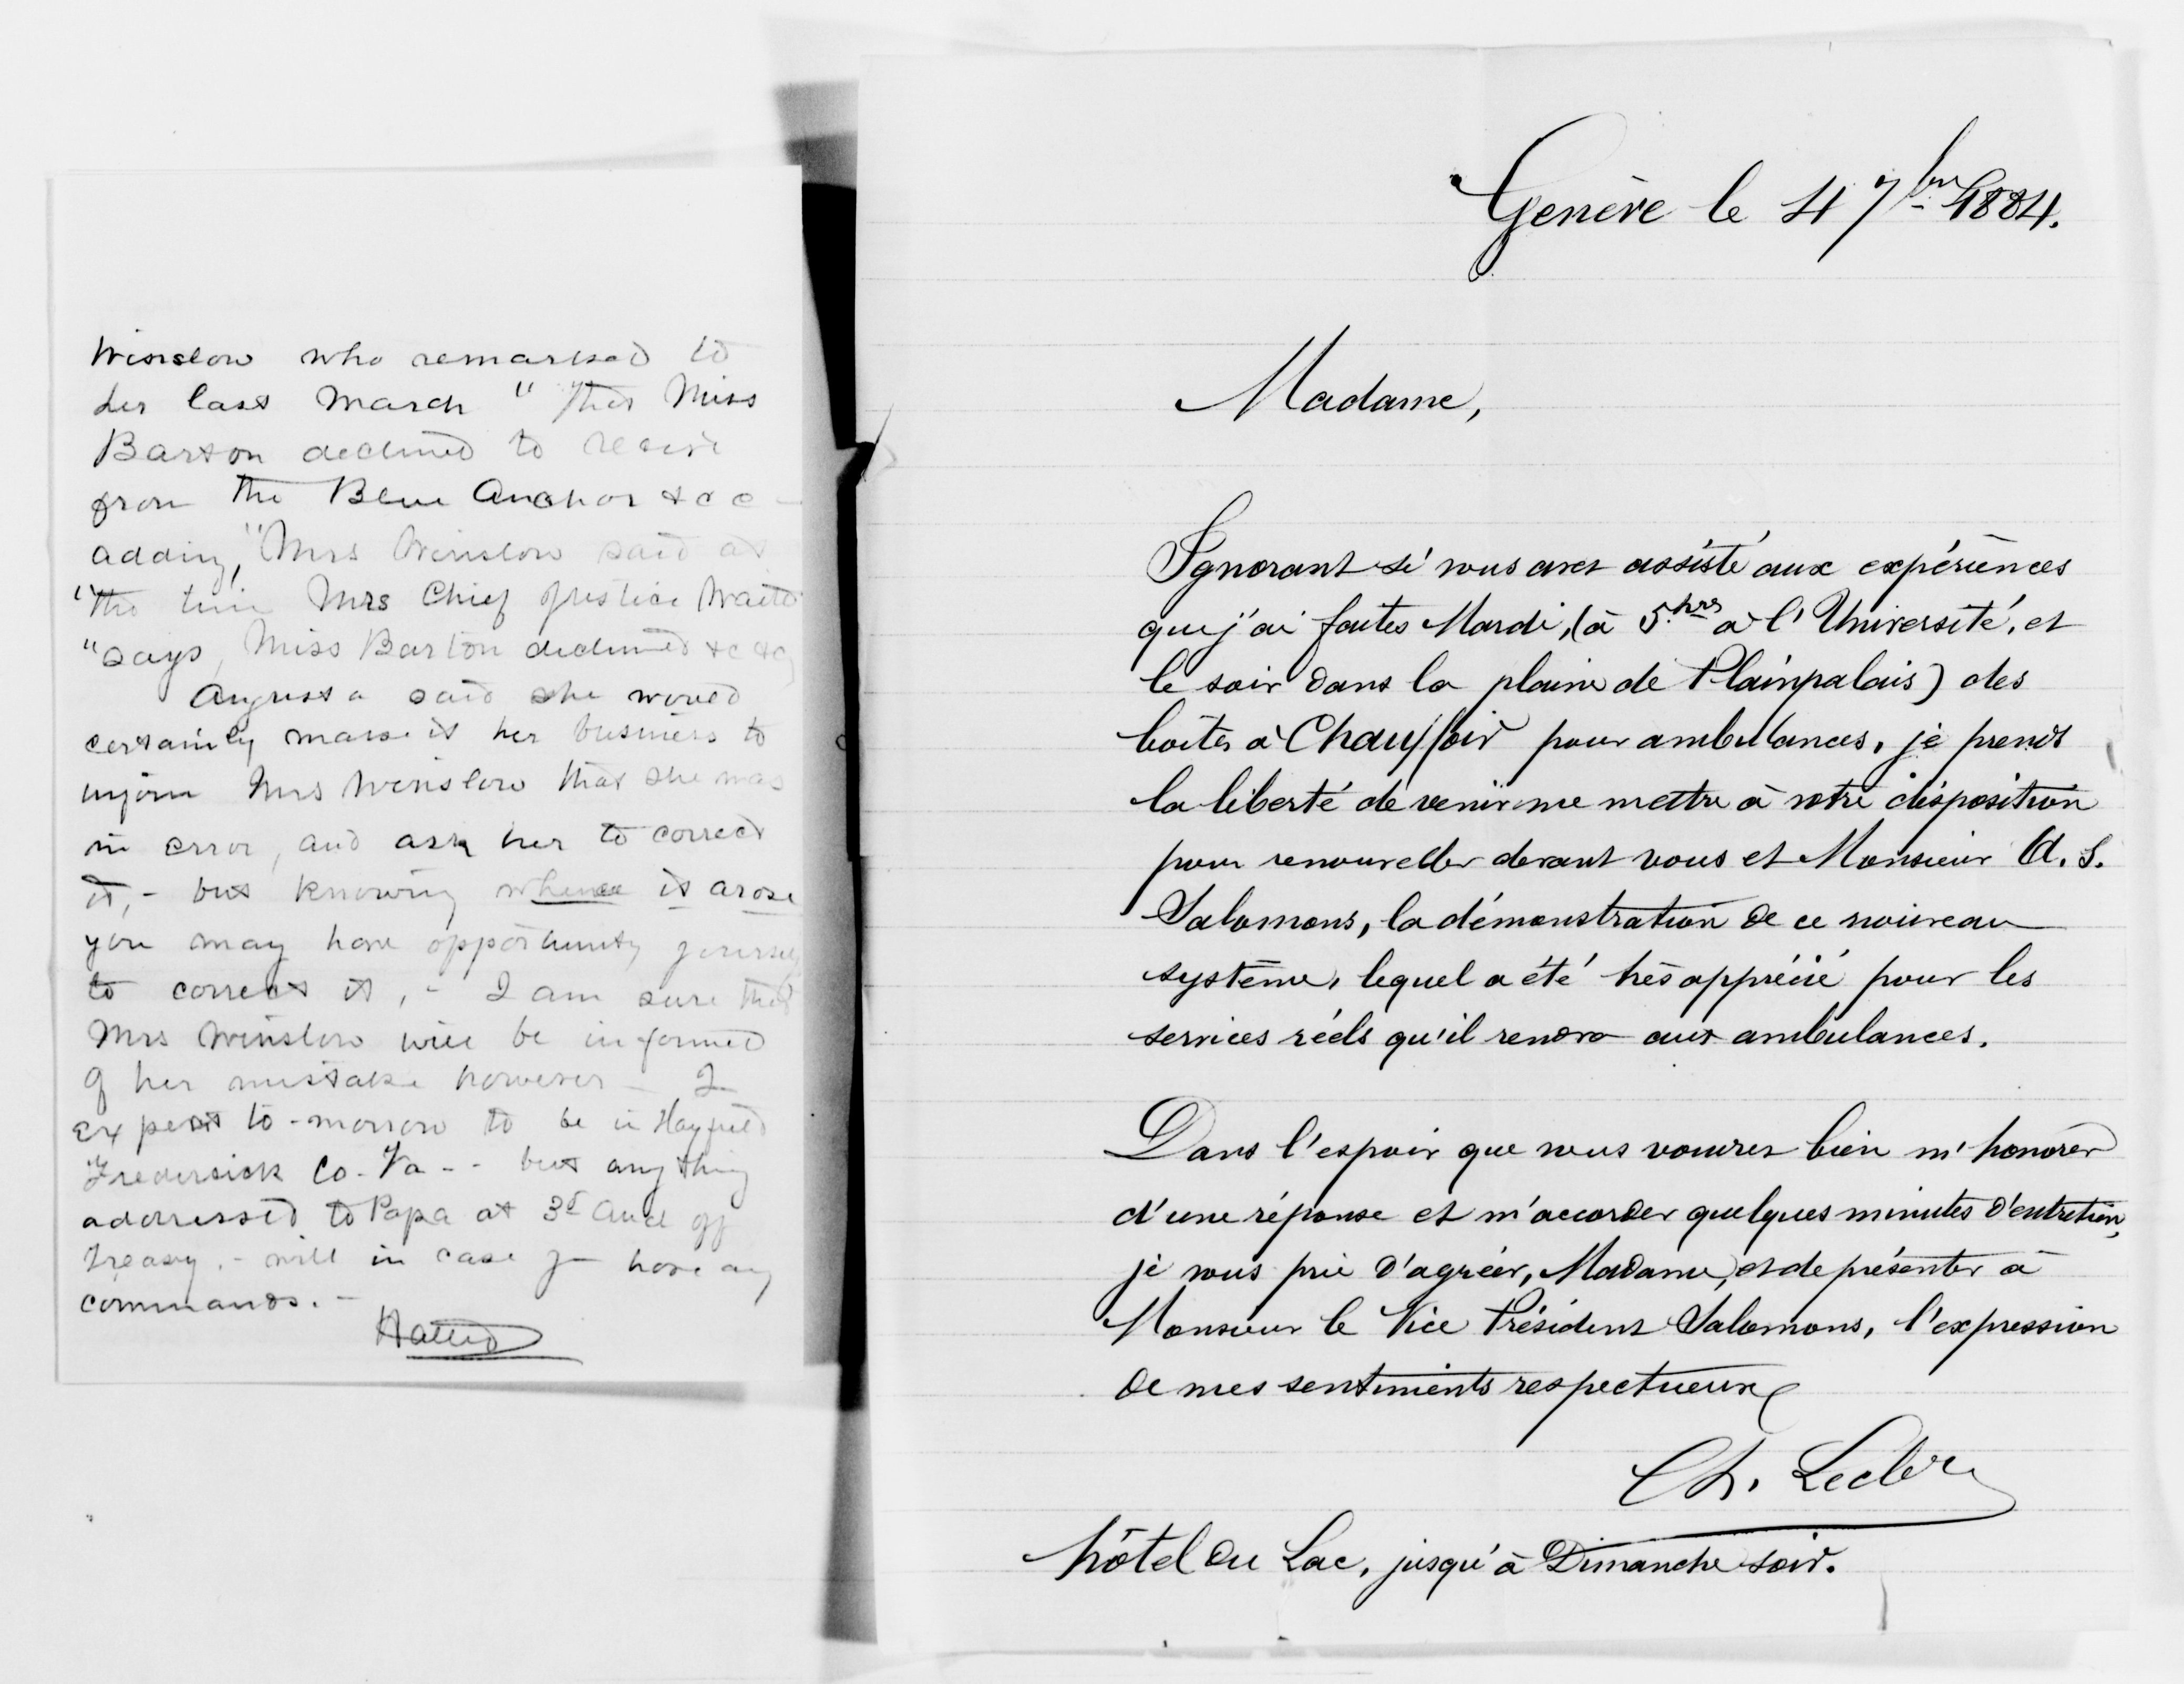 Winslow who remarked to
her last March "That Miss
Barton declined to receive
from the Blue Anchor &c c —
adding, "Mrs Winslow said at
"the time Mrs Chief Justice Waite
"says, Miss Barton declined &c &c,
Augusta said she would
certainly make it her business to
inform Mrs Winslow that she was
in error, and ask her to correct
it, - but knowing whence it arose
you may have opportunity yourself
to correct it, - I am sure that
Mrs Winslow will be informed
of her mistake however — I
expect to-morrow to be in Hayfield
Frederick Co. Va -- but anything
addressed to Papa at 3d Aud off
Treasy. - will in case you have any
commands. -
Genève le 4 7bre 1884.
Madame,
Ignorant si vous avez assisté aux expériences
que j'ai faites Mardi, (à 5.hrs à l'Université, et
le soir dans la plaine de Plainpalais) des
boîtes à Chauffoir pour ambulances, je prends
la liberté de venir me mettre à votre disposition
pour renouveller devant vous et Monsieur A. S.
Salomons, la démonstration de ce nouveau
système, lequel a été très apprécié pour les
services réels qu'il rendra aux ambulances.
Dans l'espoir que vous voudrez bien m'honorer
d'une réponse et m'accorder quelques minutes d'entretien,
je vous prie d'agréer, Madame, et de présenter à
Monsieur le Vice Président Salomons, l'expression
de mes sentiments respectueux
Ch. Leclerc
hôtel du Lac, jusqu'à Dimanche soir.